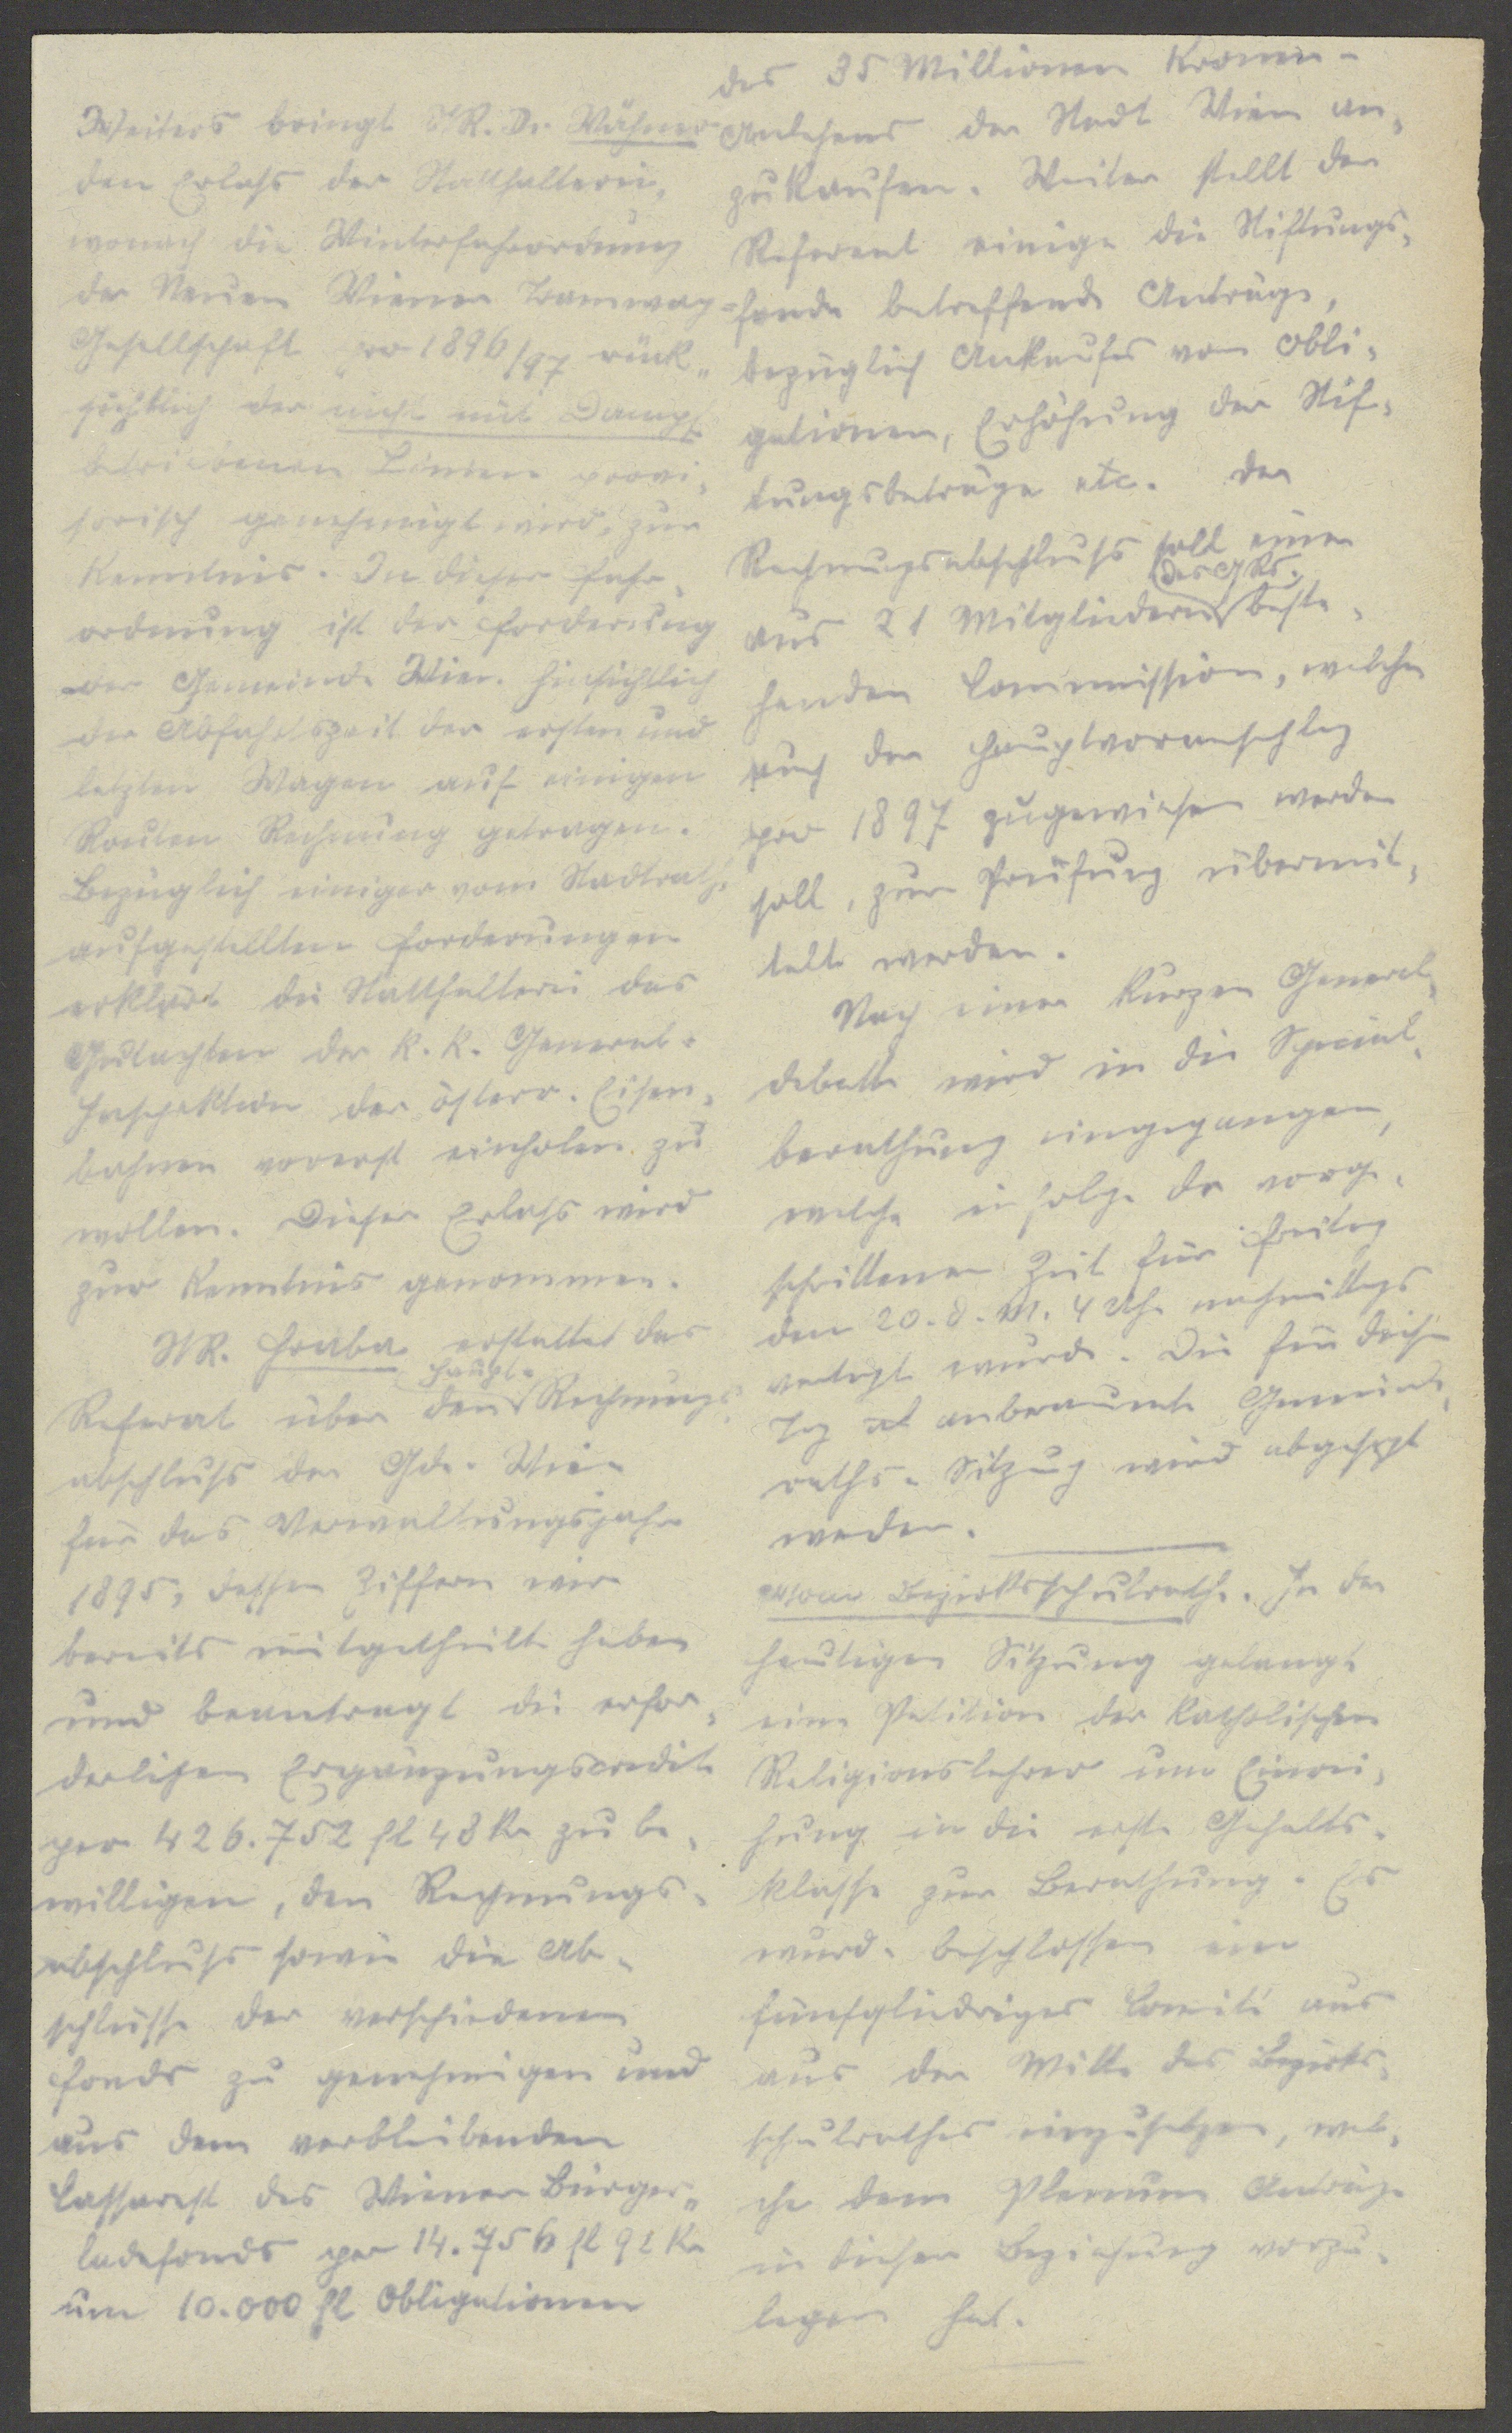 Weiters bringt StR. Dr. Wähner
den Erlaß der Statthalterei,
wonach die Winterfahrordnung
der Neuen Wiener Tramway-
Gesellschaft pro 1896/97 rück-
sichtlich der nicht mit Dampf
betriebenen Linien provi-
sorisch genehmigt wird, zur
Kenntnis. In dieser Fahr-
ordnung ist der Forderung
der Gemeinde Wien hinsichtlich
der Abfahrtszeit der ersten und
letzten Wagen auf einigen
Routen Rechnung getragen.
Bezüglich einiger vom Stadtrathe
aufgestellten Forderungen
erklärt die Statthalterei das
Gutachten der k. k. General-
Inspektion der österr. Eisen-
bahnen vorerst einholen zu
wollen. Dieser Erlaß wird
zur Kenntnis genommen.
StR. Hraba erstattet das
Referat über den Haupt-Rechnungs-
abschluß der Gde. Wien
für das Verwaltungsjahr
1895, dessen Ziffern wir
bereits mitgetheilt haben
und beantragt die erfor-
derlichen Ergänzungscredite
per 426.752 fl 48 Kr zu be-
willigen, den Rechnungs-
abschluß sowie die Ab-
schlüsse der verschiedenen
Fonds zu genehmigen und
aus dem verbleibenden
Cassarest des Wiener Bürger-
ladefonds per 14.756 fl 92 Kr
um 10.000 fl Obligationen
des 35 Millionen Kronen-
Anlehens der Stadt Wien an-
zukaufen. Weiter stellt der
Referent einige die Stiftungs-
fonde betreffende Anträge,
bezüglich Ankaufes von Obli-
gationen, Erhöhung der Stif-
tungsbeträge etc. Der
Rechnungsabschluß soll einer
aus 21 Mitgliedern des GRs. beste-
henden Commission, welcher
auch der Hauptvoranschlag
pro 1897 zugewiesen werden
soll, zur Prüfung übermit-
telt werden.
Nach einer kurzen General-
debatte wird in die Special-
berathung eingegangen,
welche infolge der vorge-
schrittenen Zeit für Freitag
den 20. d. M. 4 Uhr nachmittags
vertagt wurde. Die für diesen
Tag anberaumte Gemeinde-
raths-Sitzung wird abgesagt
werden.
Bezirksschulrath. In der
heutigen Sitzung gelangt
eine Petition der katholischen
Religionslehrer um Einrei-
hung in die erste Gehalts-
klasse zur Berathung. Es
wurde beschlossen ein
fünfgliedriges Comité aus
aus der Mitte des Bezirks-
schulrathes einzusetzen, wel-
che dem Plenum Anträge
in dieser Beziehung vorzu-
legen hat.